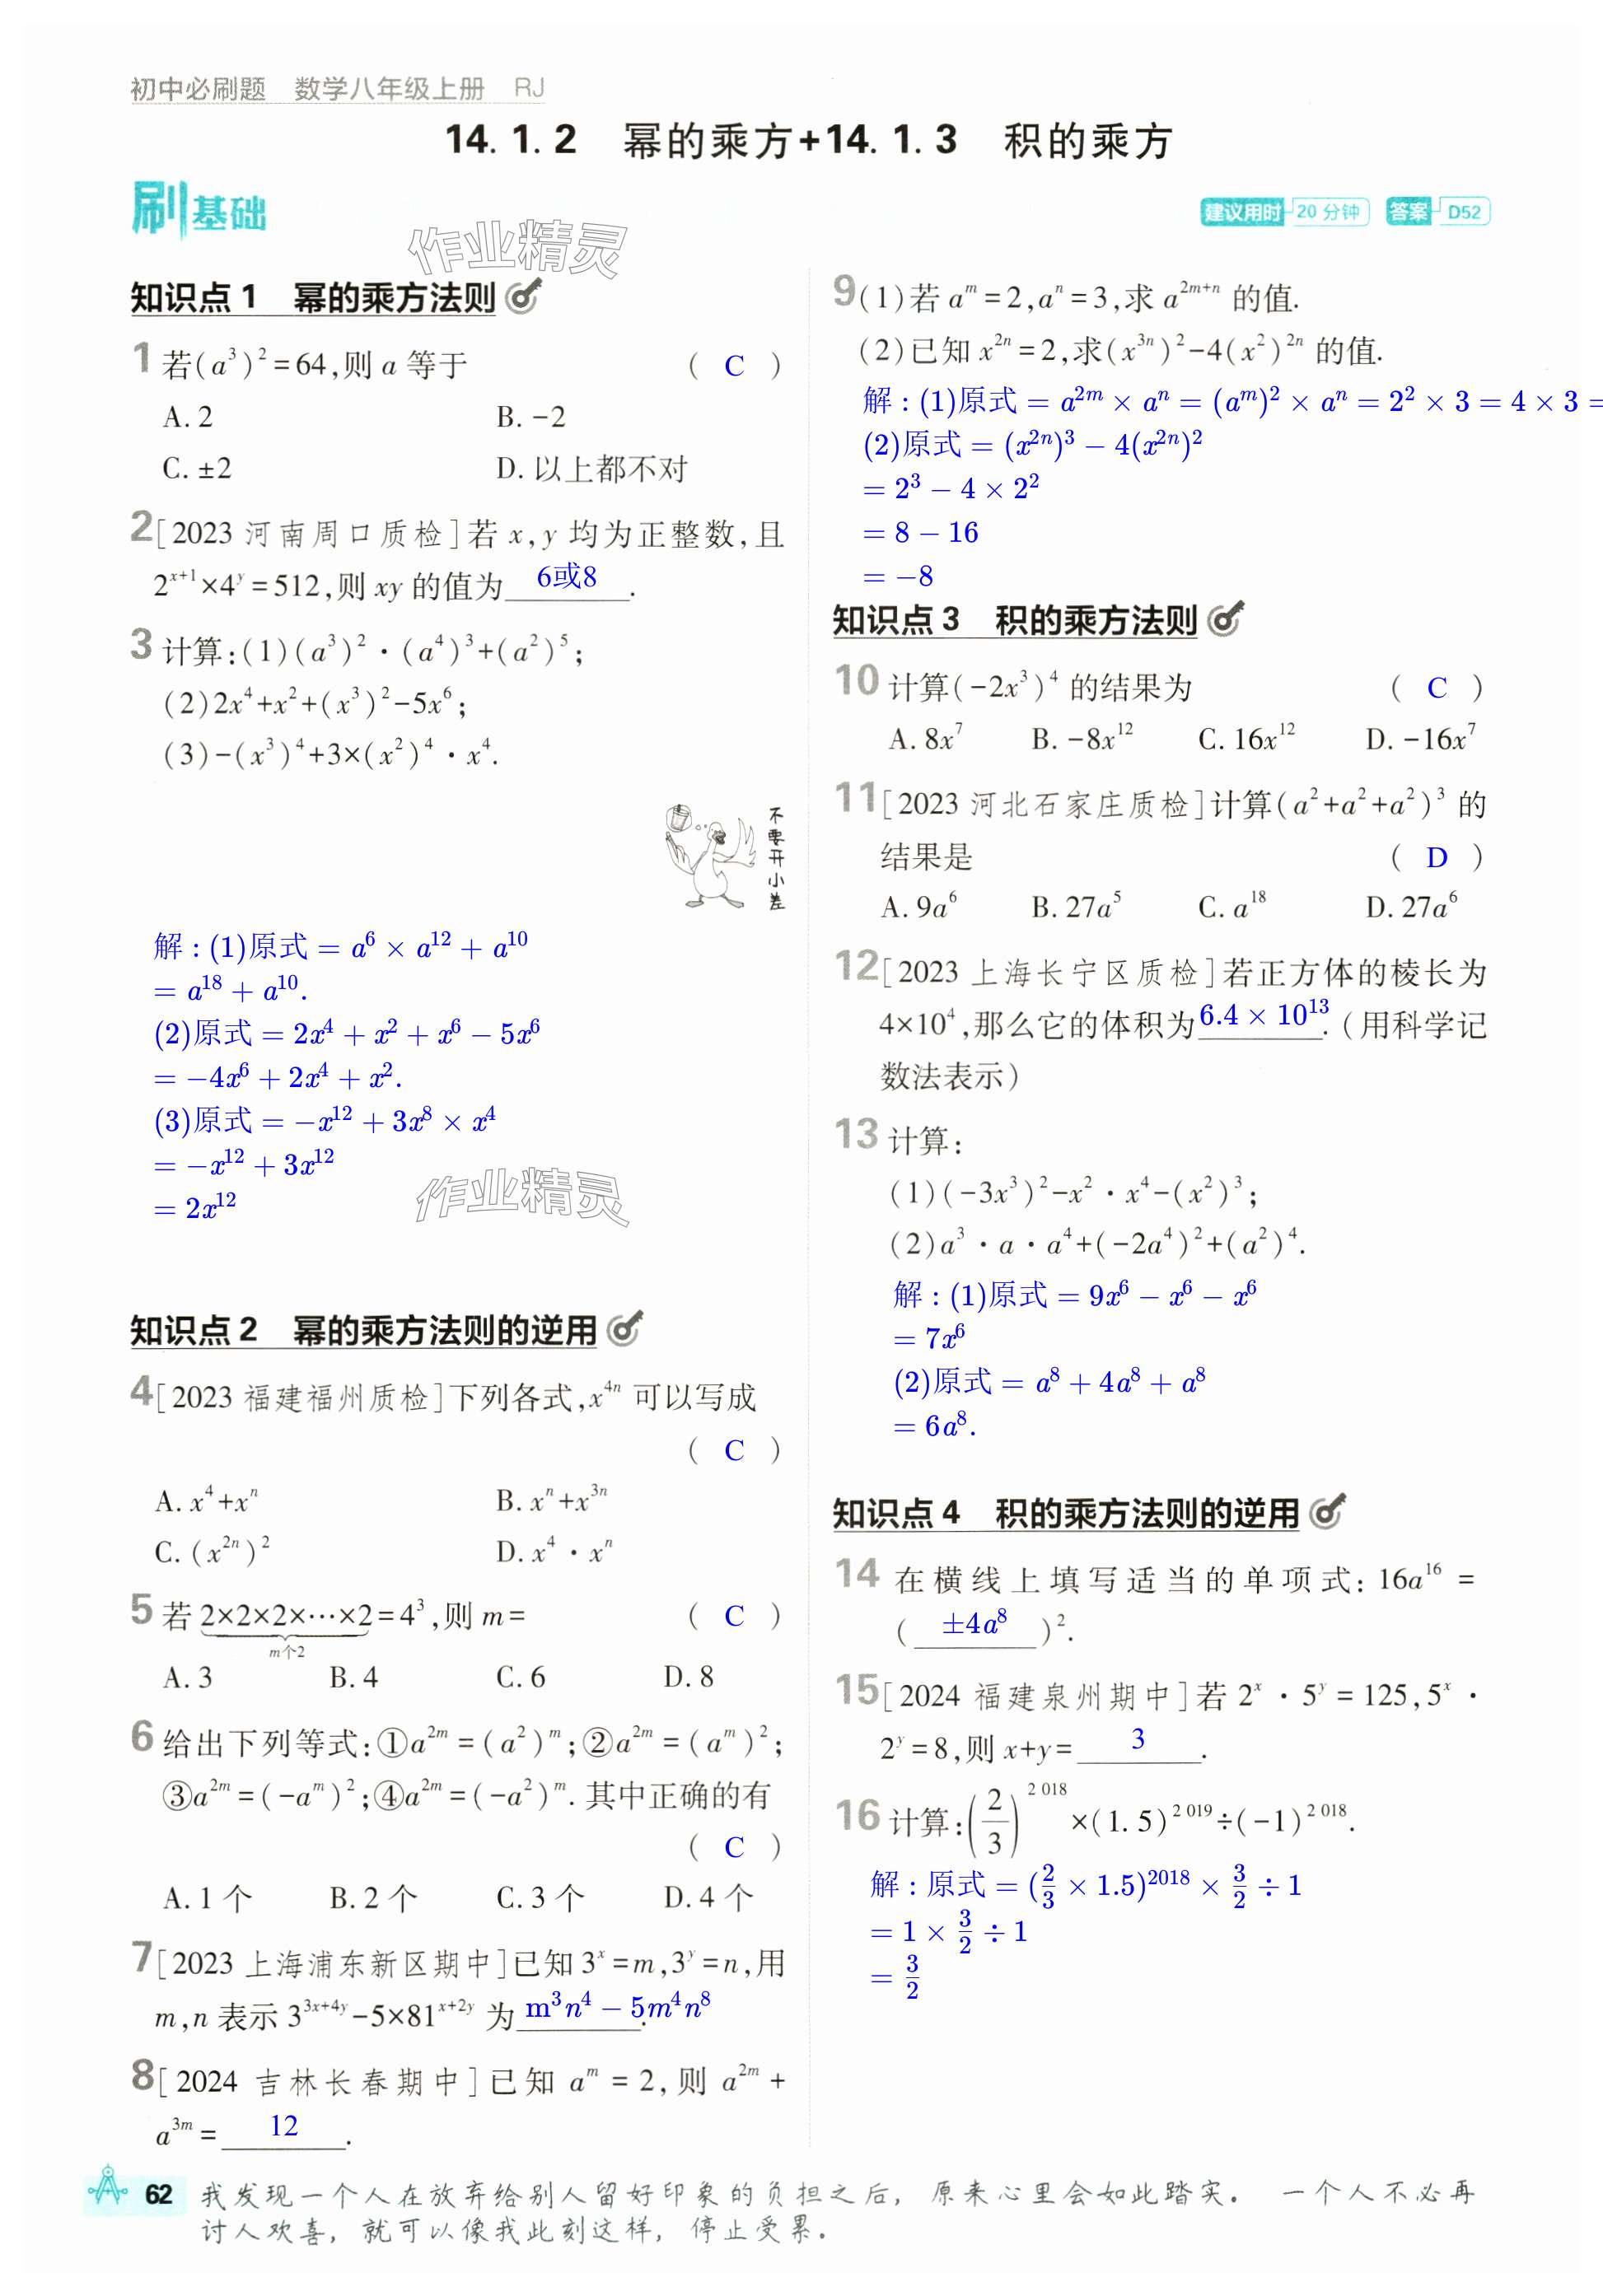 初中必刷题 数学八年级上册 RJ
14.1.2 幂的乘方+14.1.3 积的乘方
刷基础
建议用时 20分钟 答案 D52
作业精灵
知识点1 幂的乘方法则
1 若(a³)²=64,则 a 等于 ( C )
A. 2 B. -2
C. ±2 D. 以上都不对
2 [2023 河南周口质检]若 x,y 均为正整数,且
2^{x+1}×4^y=512,则 xy 的值为 6或8 .
3 计算:(1)(a³)²·(a⁴)³+(a²)⁵;
(2)2x⁴+x²+(x³)²-5x⁶;
(3)-(x³)⁴+3×(x²)⁴·x⁴.
不要开小差
解:(1)原式 = a⁶ × a¹² + a¹⁰
= a¹⁸ + a¹⁰.
(2)原式 = 2x⁴ + x² + x⁶ − 5x⁶
= −4x⁶ + 2x⁴ + x².
(3)原式 = −x¹² + 3x⁸ × x⁴
= −x¹² + 3x¹²
= 2x¹²
作业精灵
知识点2 幂的乘方法则的逆用
4 [2023 福建福州质检]下列各式,x^{4n} 可以写成
( C )
A. x⁴+xⁿ B. xⁿ+x^{3n}
C. (x^{2n})² D. x⁴·xⁿ
5 若 2×2×2×⋯×2=4³,则 m= ( C )
m个2
A. 3 B. 4 C. 6 D. 8
6 给出下列等式:①a^{2m}=(a²)^m;②a^{2m}=(a^m)²;
③a^{2m}=(-a^m)²;④a^{2m}=(-a²)^m. 其中正确的有
( C )
A. 1 个 B. 2 个 C. 3 个 D. 4 个
7 [2023 上海浦东新区期中]已知 3^x=m,3^y=n,用
m,n 表示 3^{3x+4y}-5×81^{x+2y} 为 m³n⁴ − 5m⁴n⁸ .
8 [2024 吉林长春期中]已知 a^m=2,则 a^{2m}+
a^{3m}= 12 .
9 (1)若 a^m=2,a^n=3,求 a^{2m+n} 的值.
(2)已知 x^{2n}=2,求(x^{3n})²-4(x²)^{2n} 的值.
解:(1)原式 = a^{2m} × a^n = (a^m)² × a^n = 2² × 3 = 4 × 3 =
(2)原式 = (x^{2n})³ − 4(x^{2n})²
= 2³ − 4 × 2²
= 8 − 16
= −8
知识点3 积的乘方法则
10 计算(-2x³)⁴ 的结果为 ( C )
A. 8x⁷ B. -8x¹² C. 16x¹² D. -16x⁷
11 [2023 河北石家庄质检]计算(a²+a²+a²)³ 的
结果是 ( D )
A. 9a⁶ B. 27a⁵ C. a¹⁸ D. 27a⁶
12 [2023 上海长宁区质检]若正方体的棱长为
4×10⁴,那么它的体积为 6.4 × 10¹³ .(用科学记
数法表示)
13 计算:
(1)(-3x³)²-x²·x⁴-(x²)³;
(2)a³·a·a⁴+(-2a⁴)²+(a²)⁴.
解:(1)原式 = 9x⁶ − x⁶ − x⁶
= 7x⁶
(2)原式 = a⁸ + 4a⁸ + a⁸
= 6a⁸.
知识点4 积的乘方法则的逆用
14 在横线上填写适当的单项式:16a¹⁶=
( ±4a⁸ )².
15 [2024 福建泉州期中]若 2^x·5^y=125,5^x·
2^y=8,则 x+y= 3 .
16 计算:(2/3)^{2 018}×(1.5)^{2 019}÷(-1)^{2 018}.
解:原式 = (2/3 × 1.5)²⁰¹⁸ × 3/2 ÷ 1
= 1 × 3/2 ÷ 1
= 3/2
62 我发现一个人在放弃给别人留好印象的负担之后，原来心里会如此踏实。 一个人不必再
讨人欢喜，就可以像我此刻这样，停止受累。